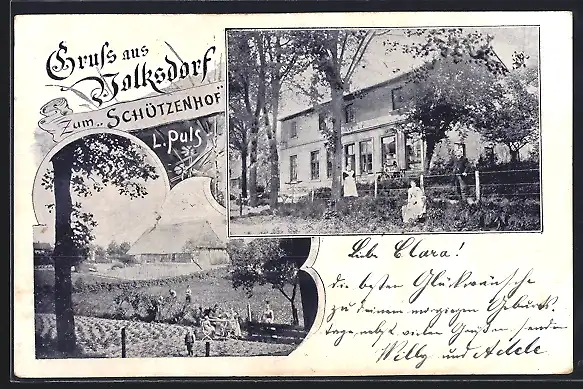 Gruſs aus
Volksdorf
Zum „SCHÜTZENHOF"
L. Puls
Liebe Clara!
die besten Glückwünsche
zu deinem morgigen Geburts-
tage, nebst vielen Grüßen senden
Willy und Adele